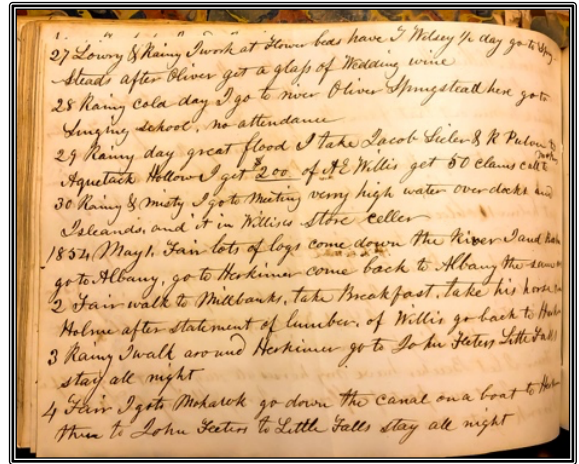 27 Lowry & Rainy I work at Flower beds have T Welsey ½ day go to Spring
Steads after Oliver get a glass of Wedding wine
28 Rainy cold day I go to river Oliver Springstead here go to
Singing School, no attendance
29 Rainy day great flood I take Jacob Sieler & R to
Aquetack Hollow I get $200 of A E Willis get 50 clams call to
30 Rainy & misty I go to Meeting verry high water over docks and
Isleands, and it in Willises store celler
1854 May 1. Fair lots of logs come down the River I and
go to Albany, go to Herkimer come back to Albany the same
2 Fair walk to Millbanks, take Breakfast, take his horse
Holme after statement of lumber, of Willis go back to
3 Rainy I walk around Herkimer go to John Feeters Little Falls
stay all night
4 Fair I goto Mohawk go down the canal on a boat to
to John Feeters to Little Falls stay all night